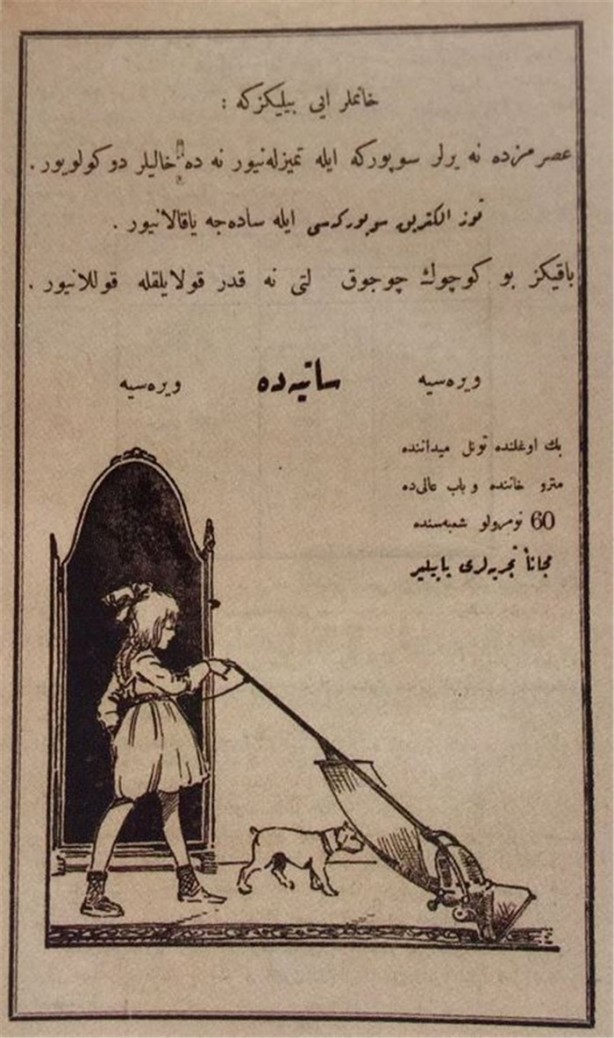 خانملر ایی بیلیکزکه :
عصرمزده نه یرلر سوپورکه ایله تمیزله‌نیور نه ده خالیلر دوکولویور .
توز الکتریق سوپورکه‌سی ایله ساده‌جه یاقالانیور .
باقیکز بو کوچوك چوجوق لتی نه قدر قولایلقله قوللانیور .
ویره‌سیه ساتیه‌ده ویره‌سیه
بك اوغلنده تونل میداننده
مترو خاننده و باب عالی‌ده
60 نومرولو شعبه‌سنده
مجاناً تجربه‌لری یاپیلیر